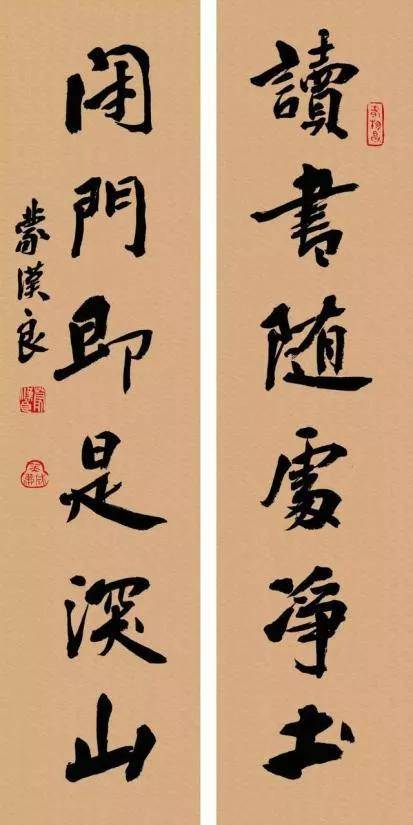 讀書随處淨土
閉門即是深山
蒙漢良